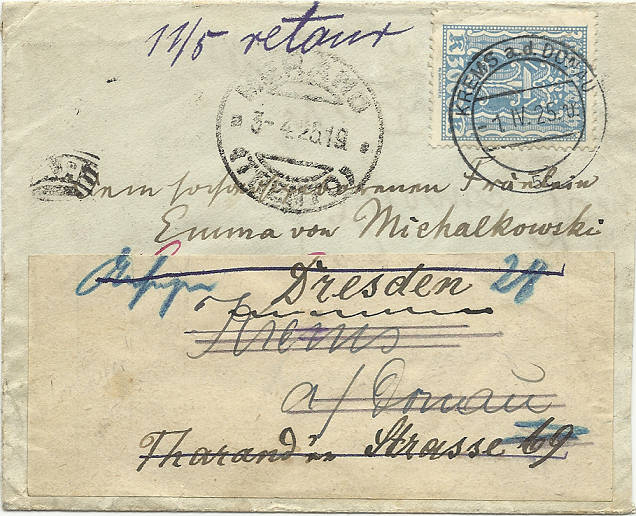 11/5 retour
MERANO
3-4.25.19
(TRENTO)
K500
KREMS a.d. DONAU
-1.IV.25.
5b
Emma von Michalkowski
Dresden 28
Krems
a/Donau
Strasse 69